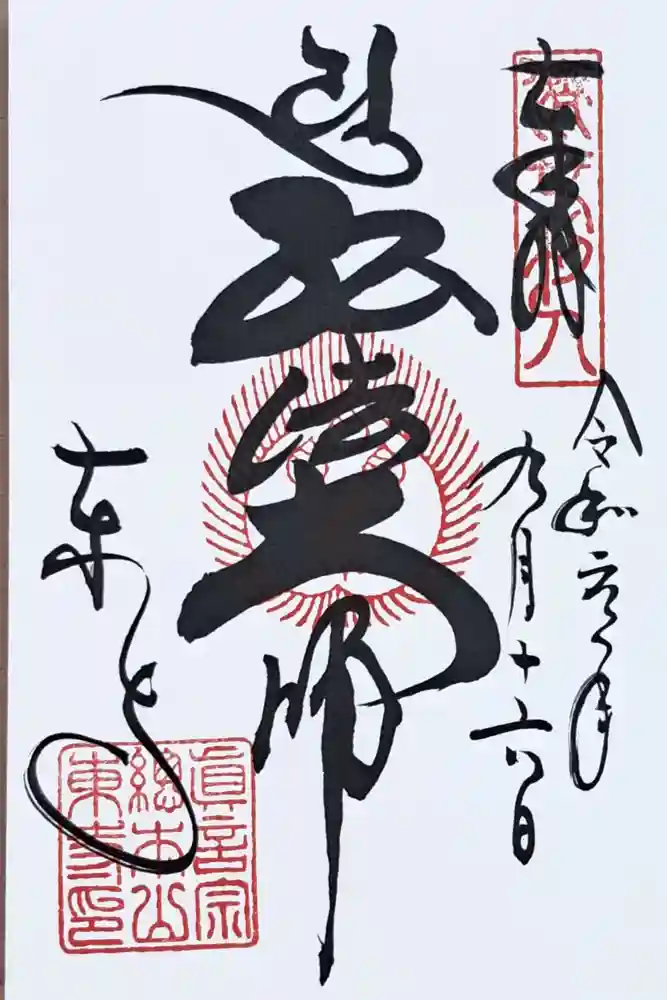 奉拝
令和元年
九月十六日
弘法大師
東寺
眞言宗
總本山
東寺印